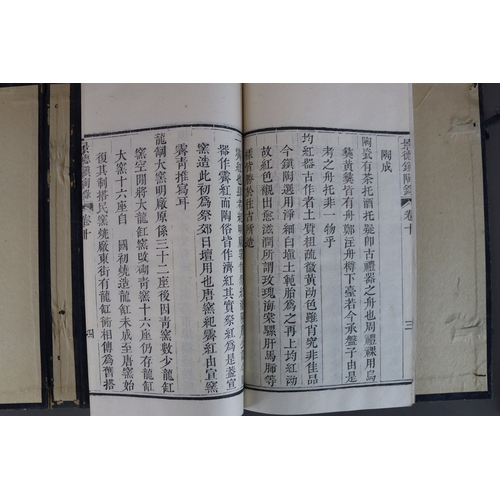 景德鎮陶錄 卷十 三
陶成
陶瓷有茶托酒托疑即古禮器之舟也周禮祼用烏
彝黃彝皆有舟鄭注舟樽下臺若今承盤子由是
考之舟托非一物乎
均紅器古作者土質粗疏微黃泑色雖肖究非佳品
今鎮陶選用淨細白埴土範胎為之再上均紅泑
故紅色襯出愈滋潤所謂玫瑰海棠騾肝馬肺等
樣皆勝於往古所造
器作霽紅而陶俗皆作濟紅其實祭紅為是蓋宣
窯造此初為祭郊日壇用也唐窯紀霽紅由宣窯
霽青推寫耳
龍缸大窯明廠原係三十二座後因青窯數少龍缸
窯空閒將大龍缸窯改砌青窯十六座仍有龍缸
大窯十六座自 國初燒造龍缸未成至唐窯始
復其制搭民窯燒廠東街有龍缸衖相傳為舊搭
景德鎮陶錄 卷十 四